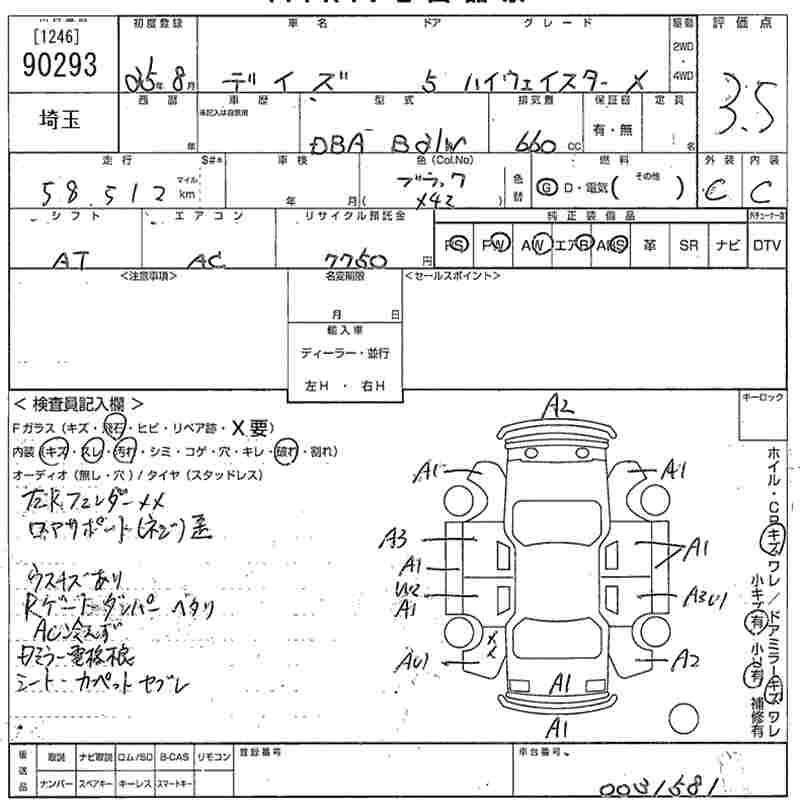 [1246]
90293
埼玉
初度登録 車名 ドア グレード 駆動 評価点
年8月 デイズ 5 ハイウェイスター X 2WD・4WD 3.5
西暦 車歴 型式 排気量 保証書 定員
未記入は自家用
年 DBA B21W 660 cc 有・無 名
走行 S#* 車検 色(Col.No) 色替 燃料 外装 内装
58.512 マイル km 年 月 ブラック X42 G D・電気(その他) C C
シフト エアコン リサイクル預託金 純正装備品
AT AC 7750円 PS PW AW エアB ABS 革 SR ナビ DTV
<注意事項> 名変期限 <セールスポイント>
月 日
輸入車
ディーラー・並行
左H・右H
<検査員記入欄> キーロック
Fガラス(キズ・飛石・ヒビ・リペア跡・X要)
内装(キズ・スレ・汚れ・シミ・コゲ・穴・キレ・破れ・割れ)
オーディオ(無し・穴)/タイヤ(スタッドレス)
左Rフェンダーメメ
ロアサポート(ネジ)歪
ウスキズあり
Rゲートダンパーヘタリ
AC冷えず
シート・カーペットセブレ
A2
A1 A1
A3 A1
A1
W2 A3U1
A1
AU1 A2
A1
A1
ホイル・CPキズワレ/ドアミラーキズワレ
小キズ有 小U有 補修有
後送品 取説 ナビ取説 ロム/SD B-CAS リモコン 登録番号 車台番号
ナンバー スペアキー キーレス スマートキー
0031581